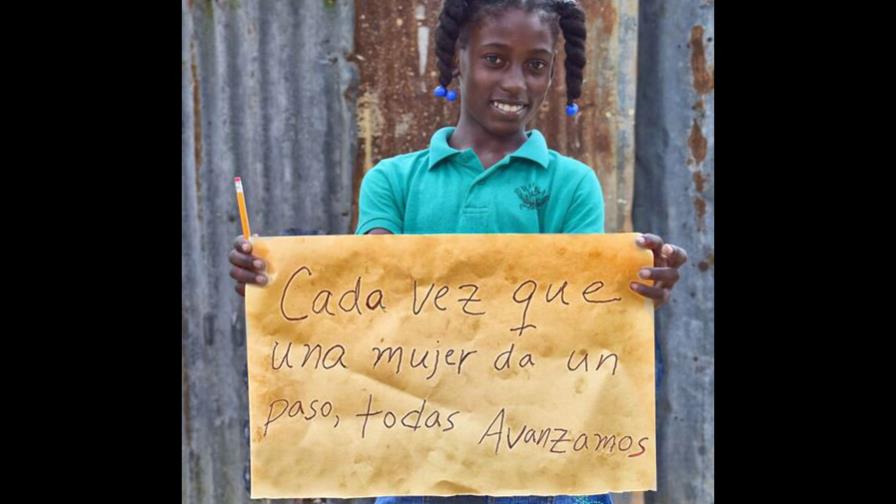 Cada vez que
una mujer da un
paso, todas Avanzamos